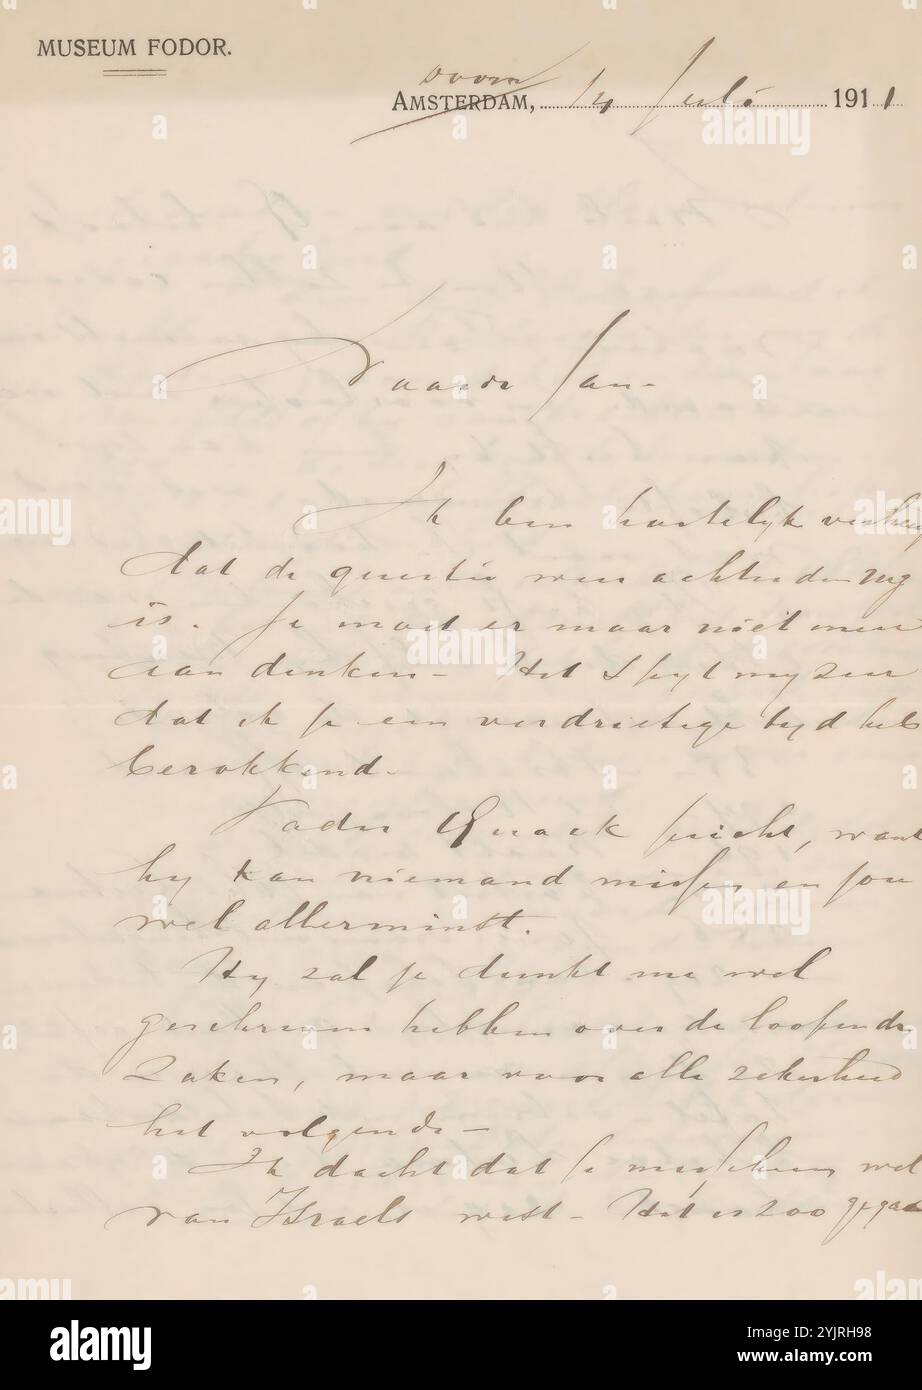 MUSEUM FODOR.
Doorn
AMSTERDAM, 14 Juli 1911
Waarde Jan -
Ik ben hartelyk verheugd
dat de questie weer achter den rug
is. Je moet er maar niet meer
aan denken - Het spyt my zeer
dat ik je een verdrietige tyd heb
berokkend -
Vader Quack zucht, want
hy kan niemand missen en jou
wel allerminst.
Hy zal je dunkt me wel
geschreven hebben over de loopende
zaken, maar voor alle zekerheid
het volgende -
Ik dacht dat je misschien wel
van Israels wist - Het is zoo gegaan
alamy
Image ID: 2YJRH98
www.alamy.com